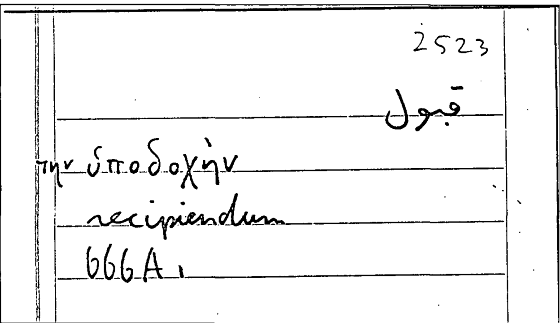 2523
قبول
την ὑποδοχὴν
recipiendum
666A.